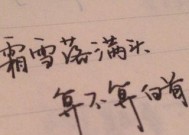 霜雪落满头
算不算白首